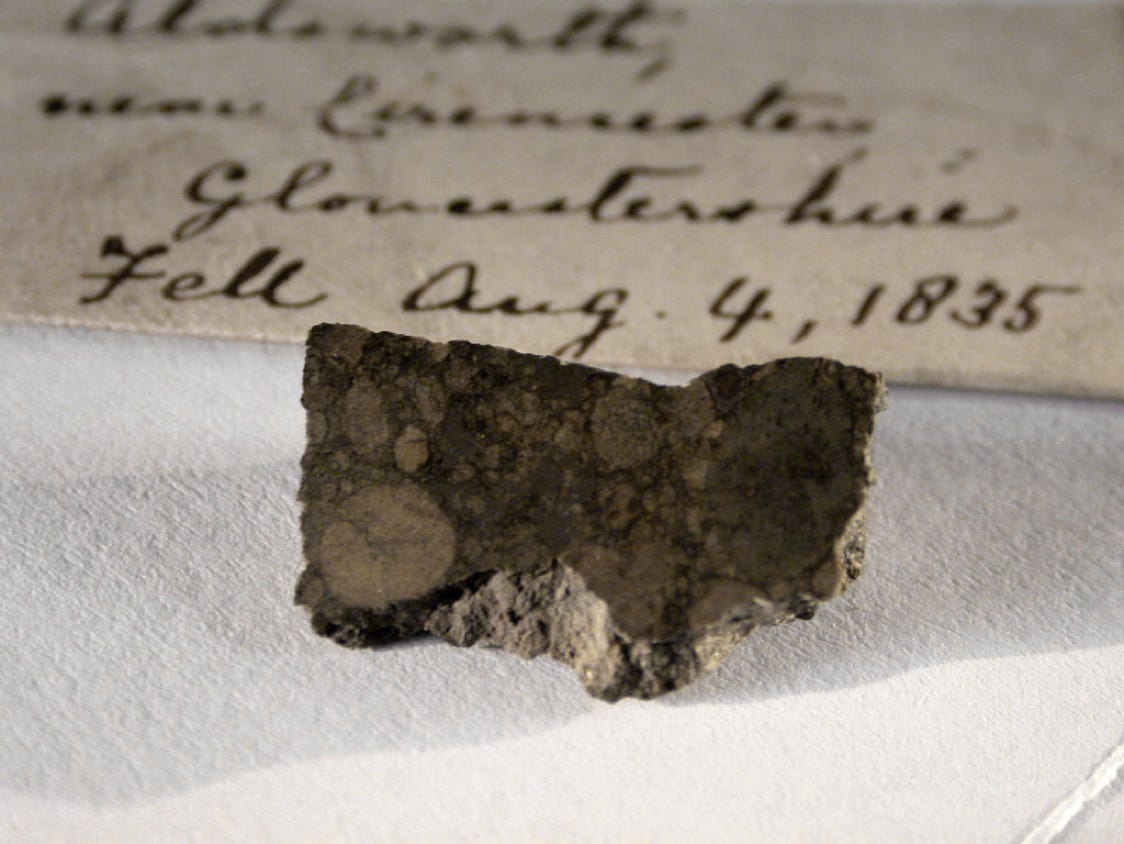 Aldsworth,
near Cirencester,
Gloucestershire
Fell Aug. 4, 1835